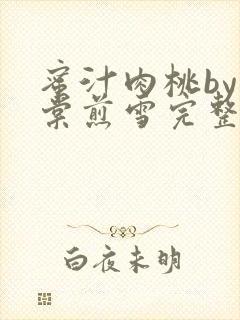 蜜汁肉桃by
棠煎雪完整
白夜未明